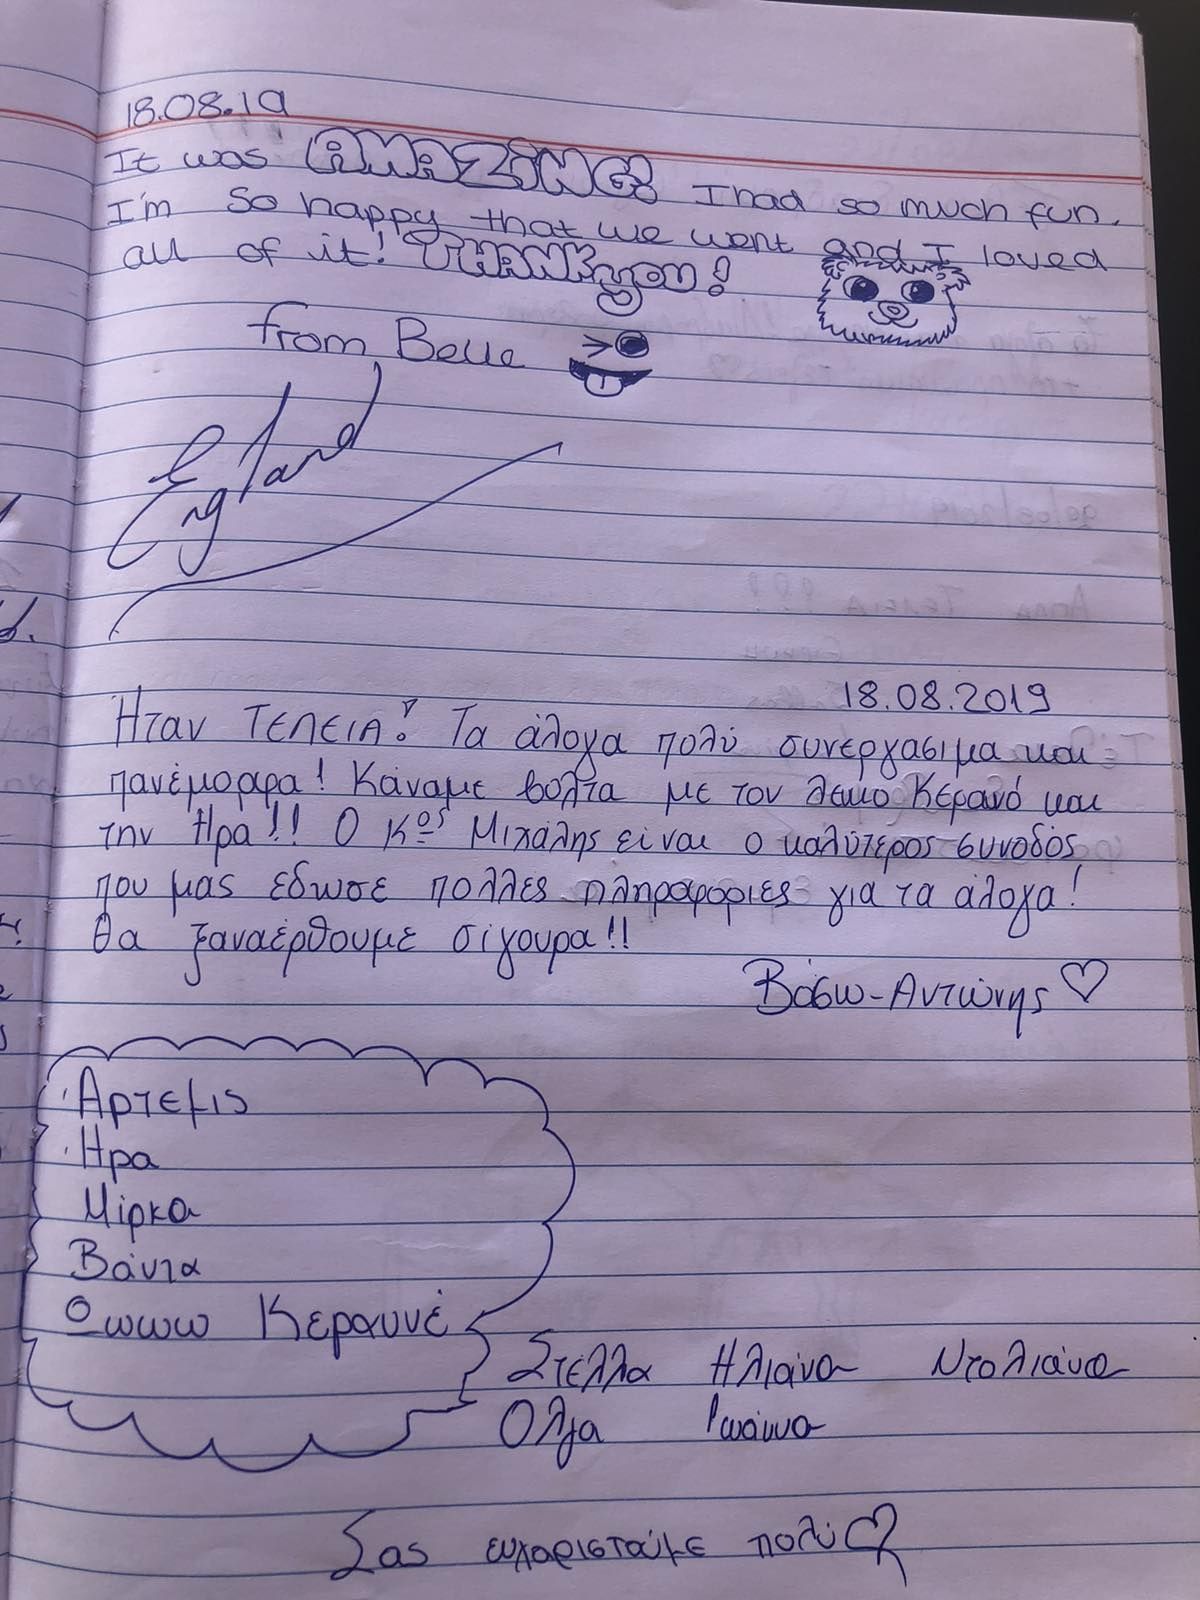 18.08.19
It was AMAZING! I had so much fun.
I'm so happy that we went and I loved
all of it! THANK you!
from Belle
England
18.08.2019
Ήταν ΤΕΛΕΙΑ! Τα άλογα πολύ συνεργασιμα και
πανέμορφα! Κάναμε βολτα με τον λευκο Κεραυνό και
την Ηρα!! Ο Κος Μιχάλης είναι ο καλύτερος συνοδός
που μας εδωσε πολλες πληροφοριες για τα άλογα!
Θα ξαναέρθουμε σίγουρα!!
Βάσω-Αντώνης ♡
Άρτεμις
Ήρα
Μίρκα
Βάντα
Ωωωω Κεραυνέ
Στέλλα Ηλιάνα Ντολιάνα
Ολγα Ιωάννα
Σας ευχαριστούμε πολύ ♡